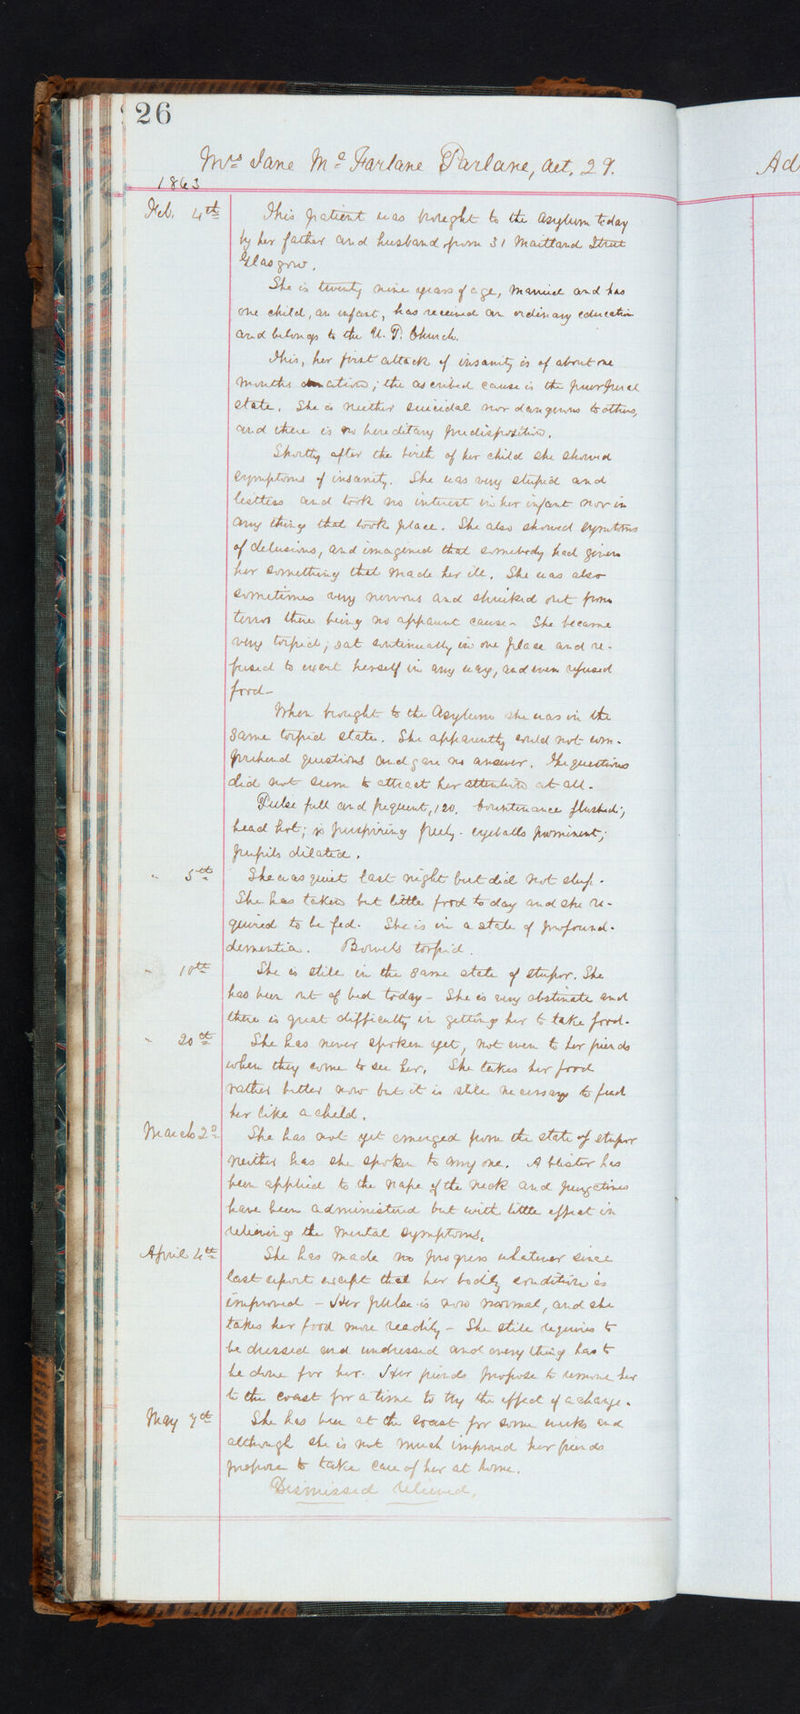 26
Mrs Jane McFarlane Parlane, aet. 29.
Ad
1863
Feb. 4th This patient was brought to the asylum to day
by her father and husband from 31 Maitland Street
Glasgow.
She is twenty nine years of age, married and has
one child, an infant, has received an ordinary education
and belongs to the U. P. Church.
This, her first attack of insanity is of about one
months duration; the ascribed cause is the puerperal
state. She is neither suicidal nor dangerous to others,
and there is no hereditary predisposition.
Shortly after the birth of her child she showed
symptoms of insanity. She was very stupid and
listless and took no interest in her infant nor in
any thing that took place. She also showed symptoms
of delusions, and imagined that somebody had given
her something that made her ill. She was also
sometimes very nervous and shrieked out from
terror there being no apparent cause - She became
very torpid; sat continually in one place and re-
fused to exert herself in any way, and even refused
food -
When brought to the Asylum she was in the
same torpid state. She apparently could not com-
prehend questions and gave no answer. The questions
did not seem to attract her attention at all.
Pulse full and frequent, 120. Countenance flushed;
head hot; perspiring freely - eyeballs prominent;
pupils dilated.
" 5th She was quiet last night but did not sleep.
She has taken but little food to day and she re-
quired to be fed. She is in a state of profound
dementia. Bowels torpid.
" 10th She is still in the same state of stupor. She
has been out of bed today - She is very obstinate and
there is great difficulty in getting her to take food.
" 20th She has never spoken yet, not even to her friends
when they come to see her. She takes her food
rather better now but it is still necessary to feed
her like a child.
March 2d She has not yet emerged from the state of stupor
neither has she spoken to any one. A blister has
been applied to the nape of the neck and purgatives
have been administered but with little effect in
relieving the mental symptoms.
April 4th She has made no progress whatever since
last report except that her bodily condition is
improved - Her pulse is now normal, and she
takes her food more readily - She still requires to
be dressed and undressed and every thing has to
be done for her. Her friends propose to remove her
to the coast for a time to try the effect of a change.
May 7th She has been at the coast for some weeks and
although she is not much improved her friends
propose to take care of her at home.
Dismissed relieved.